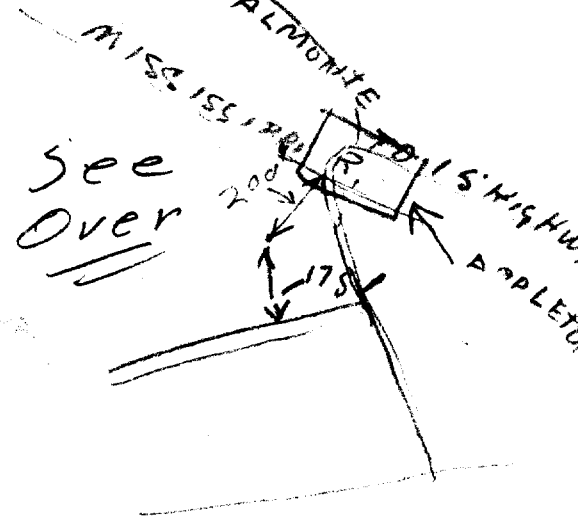 ALMONTE
MISSISSIPPI
R.
TO 15 HIGHW
APPLETO
See
Over
200'
175'